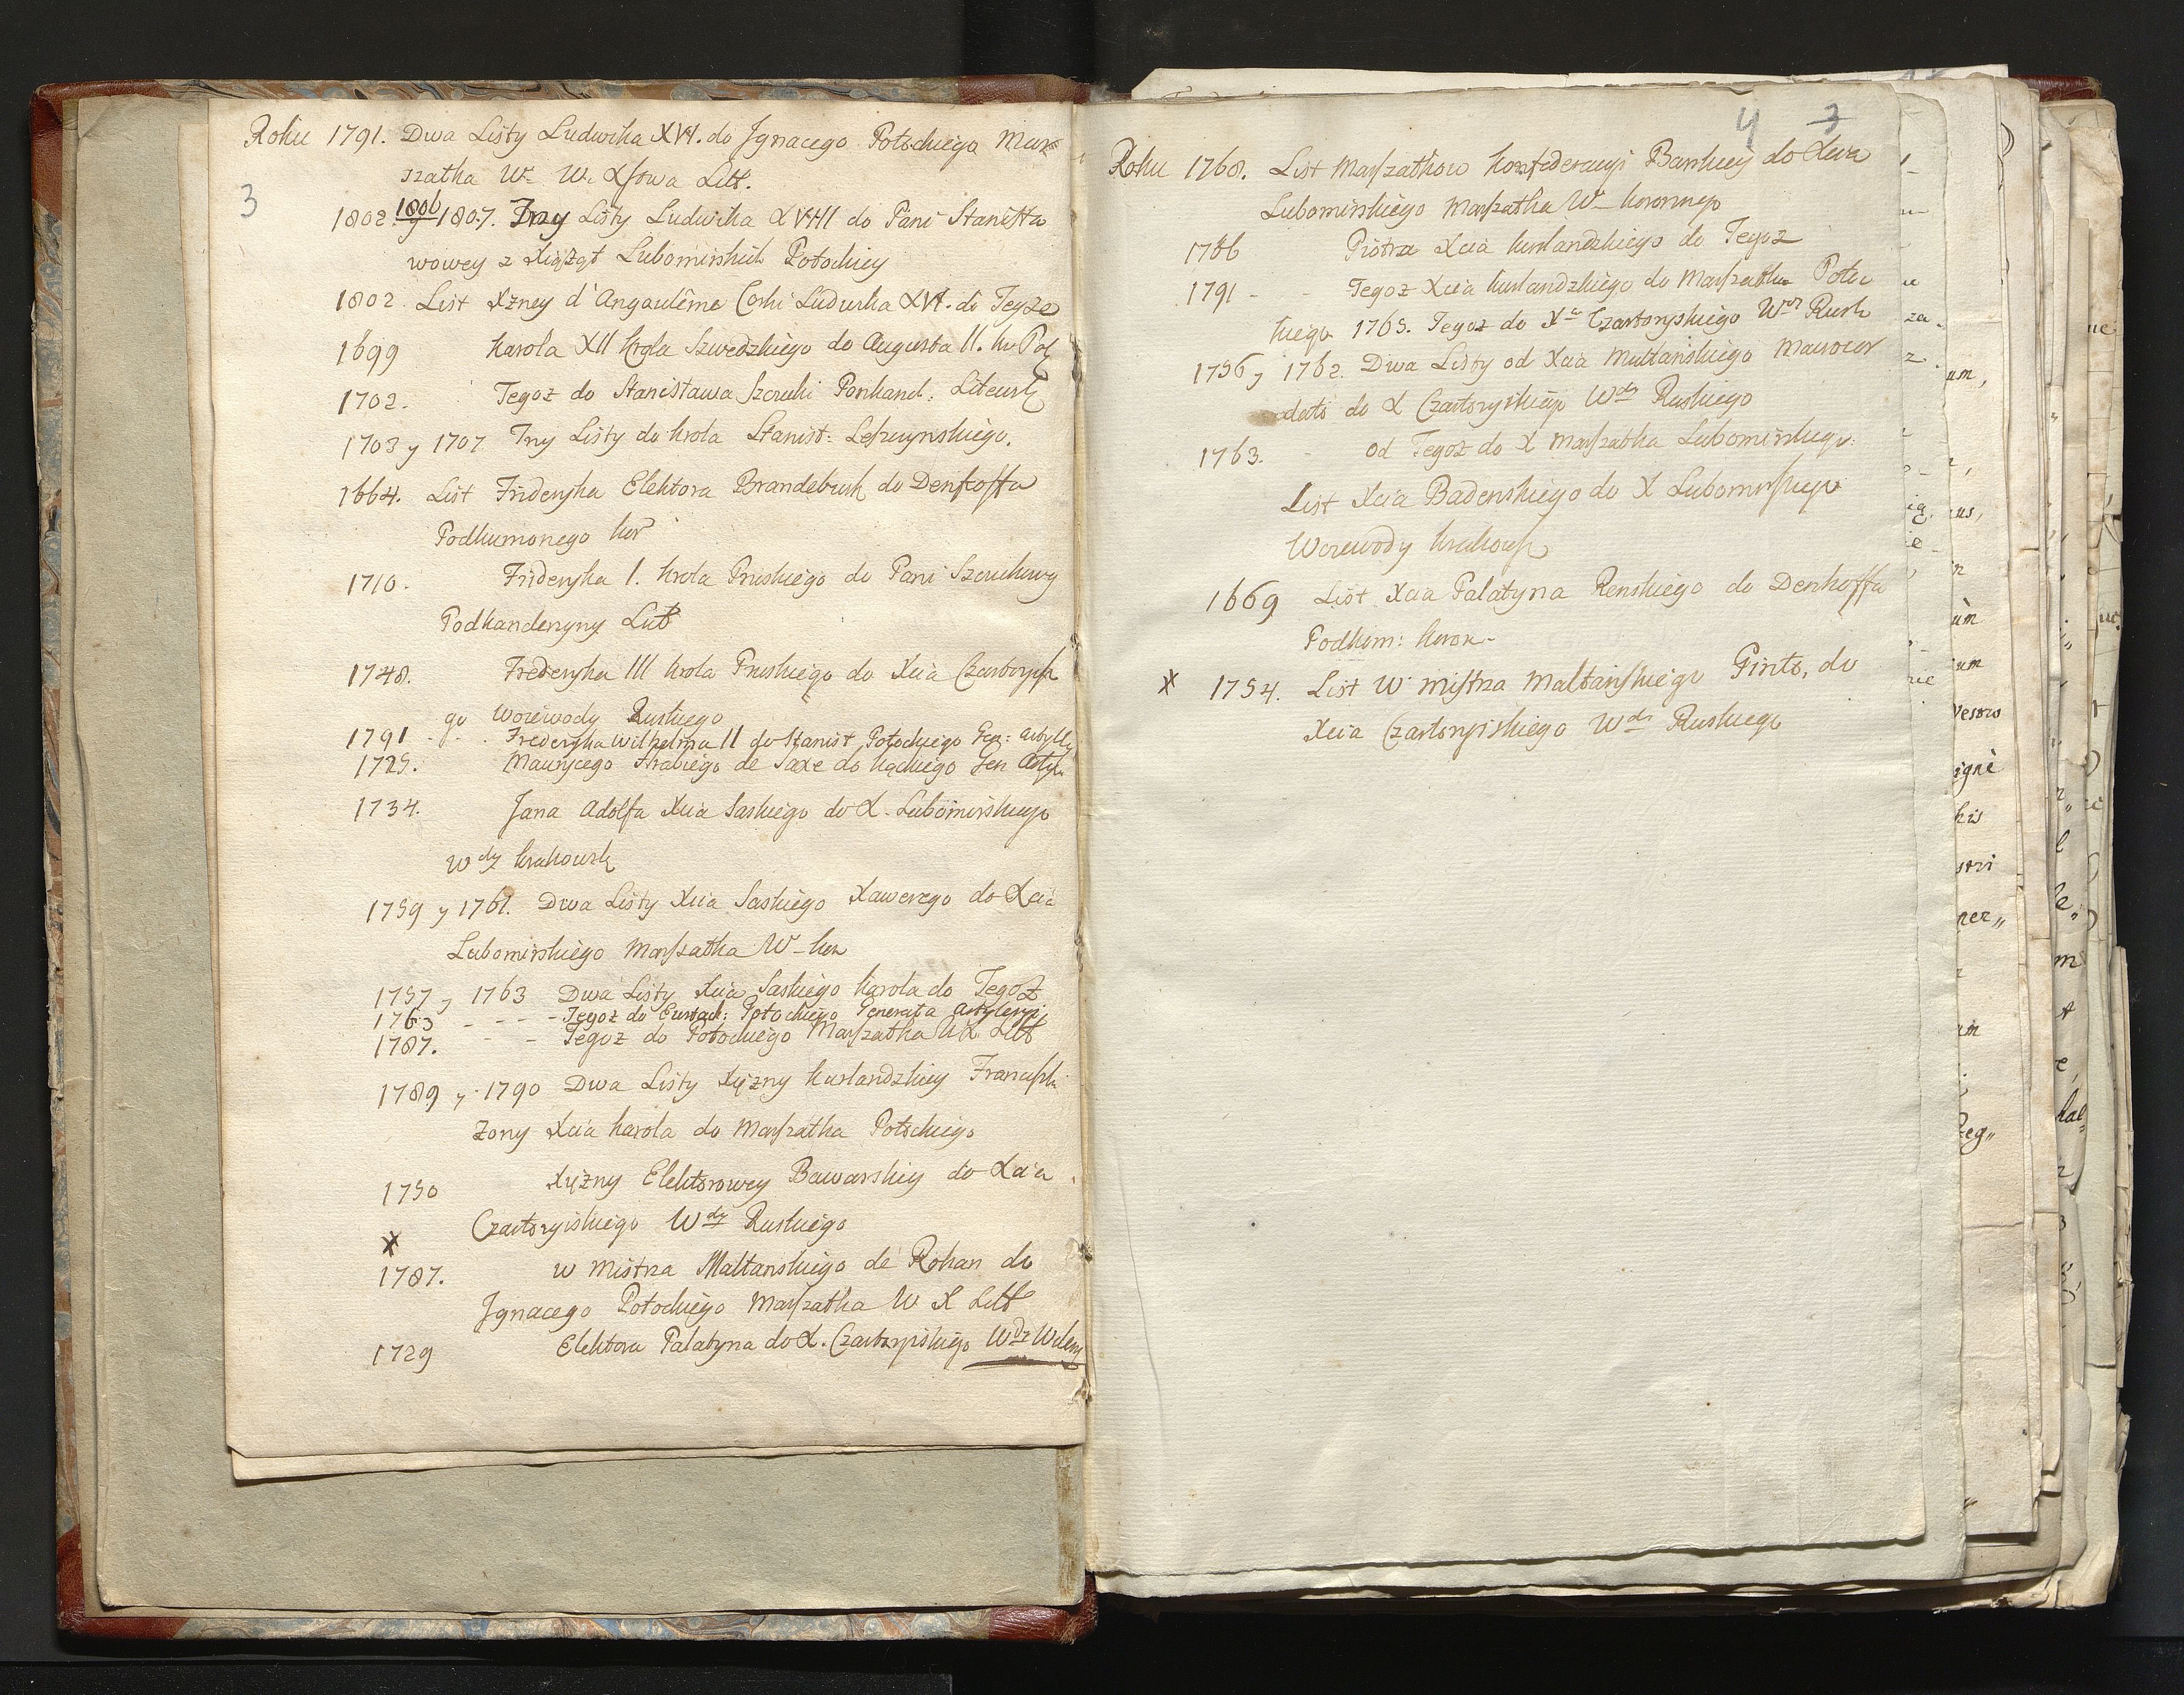 Roku 1791. Dwa Listy Ludwika XVI. do Jgnacego Potockiego Mar
szałka W. W. Xstwa Litt.
3
1802. 1806 y 1807. Trzy Listy Ludwika XVIII do Pani Stanisła
wowey z Xiążąt Lubomirskich Potockiey
1802. List Xżney d'Angoulême Corki Ludwika XVI. do Teyże
1699 Karola XII Krola Szwedzkiego do Augusta II. kr. Pol
1702. Tegoż do Stanisława Szczuki Podkancl: Litewsk
1703 y 1707 Trzy Listy do Krola Stanisł: Leszczynskiego.
1664. List Frideryka Elektora Brandeburk do Denhoffa
Podkumorzego kor
1710. Frideryka I. Krola Pruskiego do Pani Szczukowy
Podkanclerzyny Litt
1748. Frederyka III Krola Pruskiego do Xcia Czartorysk
go Woiewody Ruskiego
1791. Frederyka Wilhelma II do Stanisł Potockiego Gen: Artylly
1725. Maurycego Hrabiego de Saxe do Kąckiego Gen Artyl.
1734. Jana Adolfa Xcia Saskiego do X. Lubomirskiego
Wdy Krakowsk
1759 y 1761. Dwa Listy Xcia Saskiego Xawerego do Xcia
Lubomirskiego Marszałka W - kor
1757 y 1763 Dwa Listy Xcia Saskiego Karola do Tegoż
1763 - - - - Tegoż do Eustach: Potockiego Generała Artyleryi
1787. - - Tegoż do Potockiego Marszałka W X Litt
1789 y 1790 Dwa Listy Xiężny Kurlandzkiey Franciszki
Zony Xcia Karola do Marszałka Potockiego
1750 Xiężny Elektorowey Bawarskiey do Xcia
Czartoryiskiego Wdy Ruskiego
X
1787. W Mistrza Maltanskiego de Rohan do
Jgnacego Potockiego Marszałka W X Litt
1729 Elektora Palatyna do X. Czartoryiskiego Wdy Wilens
4 3
Roku 1768. List Marszałkow Konfederacyi Barskiey do Xcia
Lubomirskiego Marszałka W - Koronnego
1786 Piotra Xcia Kurlandzkiego do Tegoż
1791 - - Tegoż Xcia Kurlandzkiego do Marszałka Potoc
kiego 1765. Tegoż do Xa Czartoryskiego Wdy Rusk
1756 y 1762. Dwa Listy od Xcia Multańskiego Maurocor
dato do X Czartoryskiego Wdy Ruskiego
1763. - od Tegoż do X Marszałka Lubomirskiego.
List Xcia Badenskiego do X Lubomirskiego
Woiewody Krakowsk
1669 List Xcia Palatyna Renskiego do Denhoffa
Podkom: Koron -
X 1754. List W Mistrza Maltańskiego Pinto, do
Xcia Czartoryiskiego Wdy Ruskiego